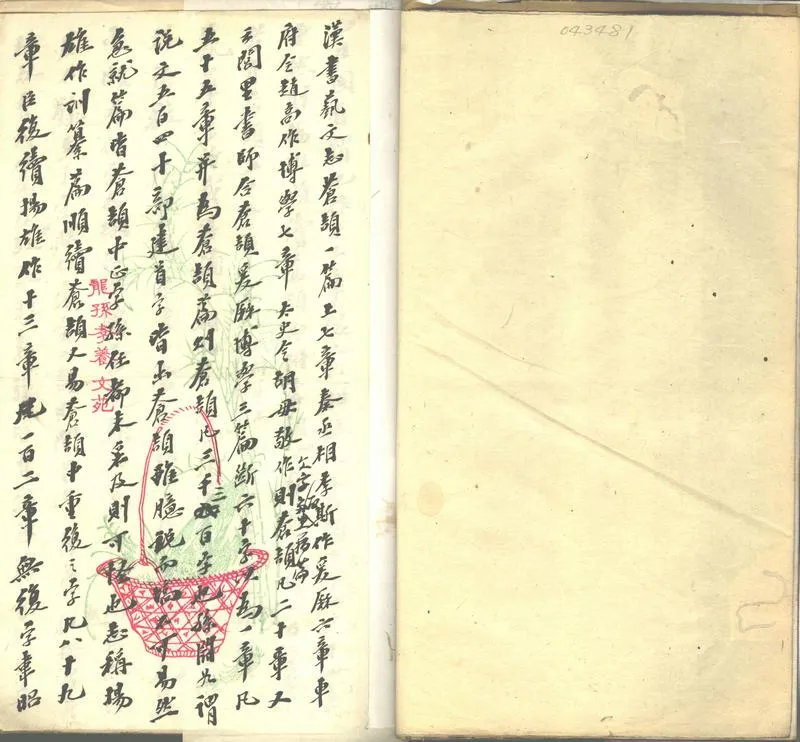 漢書藝文志蒼頡一篇上七章秦丞相李斯作爰歷六章車
府令趙高作博學七章太史令胡毋敬作則蒼頡凡二十章又
文字多取史籀篇
云閭里書師合蒼頡爰歷博學三篇斷六十字以為一章凡
五十五章并為蒼頡篇則蒼頡凡三千三百字也孫謂
説文五百四十部建首字皆出蒼頡雖臆說而塙不可易然
急就篇皆蒼頡中正字孫任都未采及則可怪也志稱揚
雄作訓纂篇順續蒼頡又易蒼頡中重復之字凡八十九
章臣復續揚雄作十三章凡一百二章無復字韋昭
龍孫孝養文苑
043481